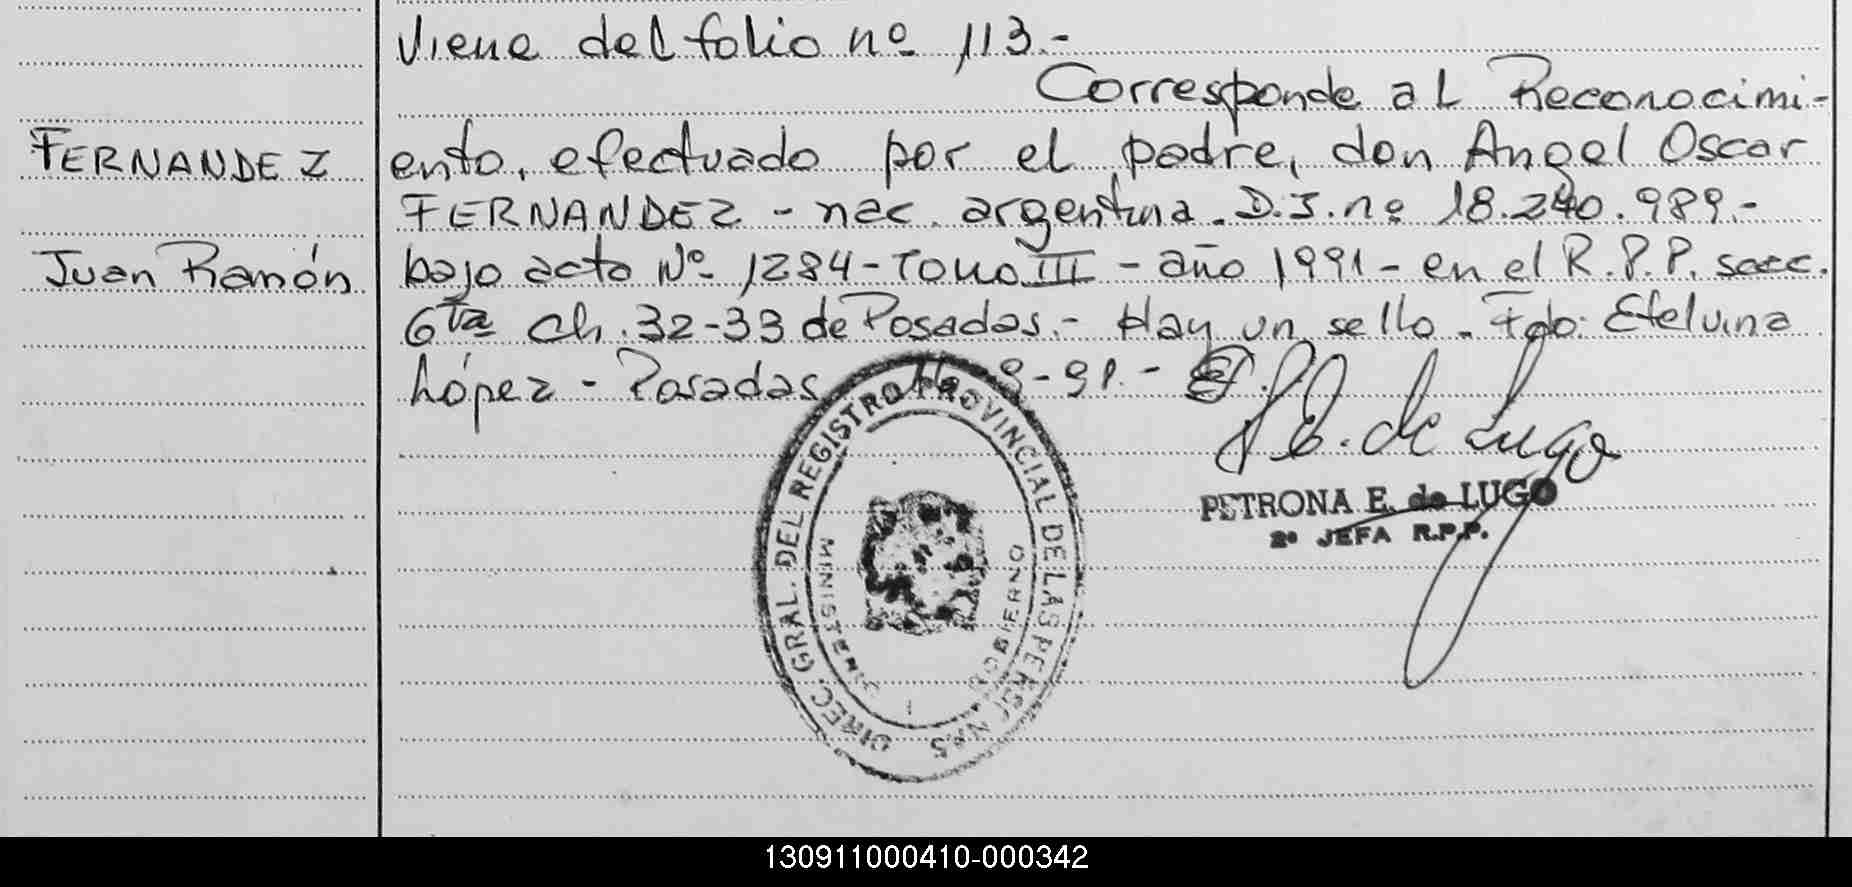 Viene del folio nº 113.-
Corresponde al Reconocimi-
FERNANDEZ
ento, efectuado por el padre, don Angel Oscar
FERNANDEZ - nac. argentina. D.I. nº 18.240.989.-
Juan Ramón
bajo acta Nº 1284 - Tomo III - año 1991 - en el R.P.P. secc.
6ta Ch. 32-33 de Posadas.- Hay un sello. Fdo: Etelvina
López - Posadas 9-91.-
P.E. de Lugo
PETRONA E. de LUGO
2º JEFA R.P.P.
DIREC. GRAL. DEL REGISTRO PROVINCIAL DE LAS PERSONAS
MINISTERIO GOBIERNO
130911000410-000342